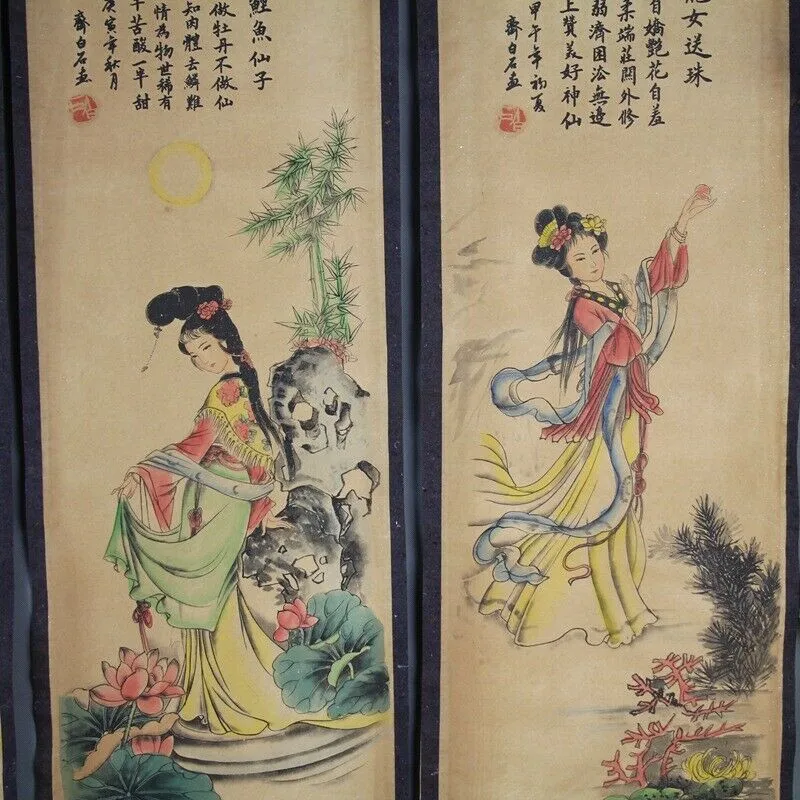 鯉魚仙子
做牡丹不做仙
知肉體去鱗難
情為物世稀有
苦酸一半甜
庚寅年秋月
齋白石画
女送珠
自嬌艷花自羞
柔端莊閣外修
弱濟困法無邊
上贊美好神仙
甲午年初夏
齋白石画